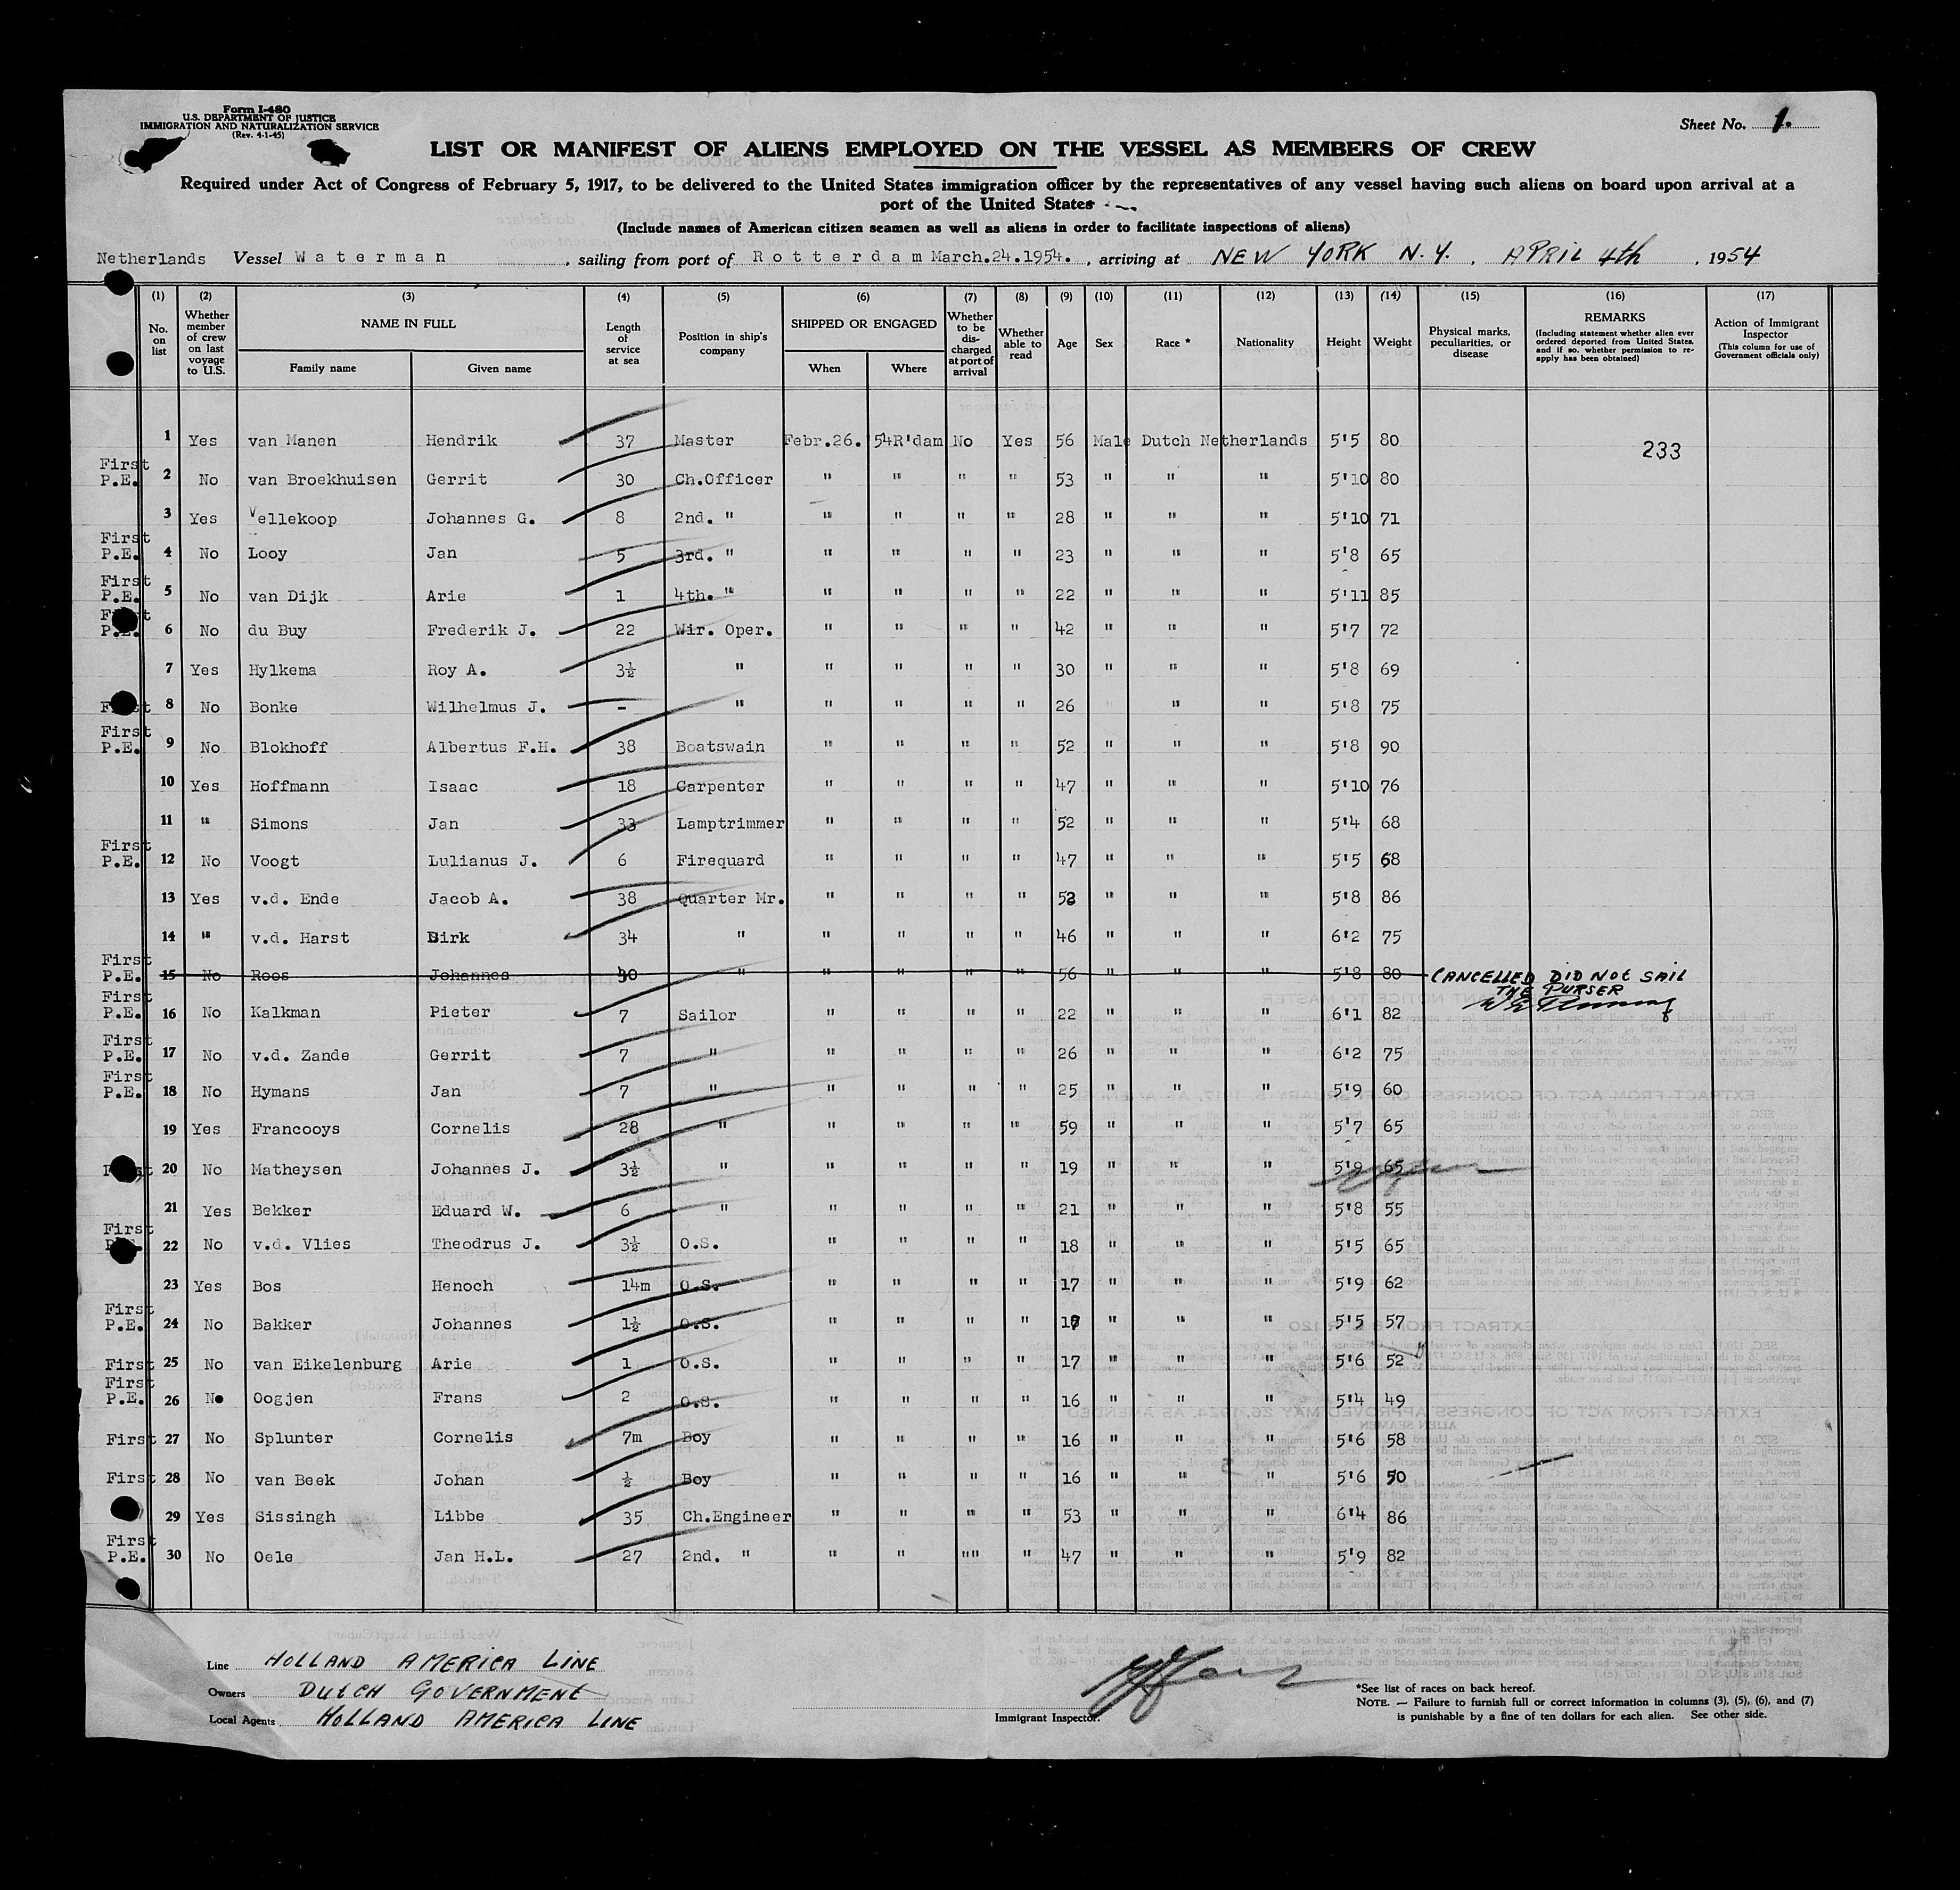 Form I-480
U.S. DEPARTMENT OF JUSTICE
IMMIGRATION AND NATURALIZATION SERVICE
(Rev. 4-1-45)
Sheet No. 1.
LIST OR MANIFEST OF ALIENS EMPLOYED ON THE VESSEL AS MEMBERS OF CREW
Required under Act of Congress of February 5, 1917, to be delivered to the United States immigration officer by the representatives of any vessel having such aliens on board upon arrival at a
port of the United States
(Include names of American citizen seamen as well as aliens in order to facilitate inspections of aliens)
Netherlands Vessel Waterman, sailing from port of Rotterdam March.24.1954. , arriving at NEW YORK N.Y. , APRIL 4th , 1954
(1) (2) (3) (4) (5) (6) (7) (8) (9) (10) (11) (12) (13) (14) (15) (16) (17)
No. on list Whether member of crew on last voyage to U.S. NAME IN FULL Family name Given name Length of service at sea Position in ship's company SHIPPED OR ENGAGED When Where Whether to be discharged at port of arrival Whether able to read Age Sex Race * Nationality Height Weight Physical marks, peculiarities, or disease REMARKS (Including statement whether alien ever ordered deported from United States, and if so, whether permission to reapply has been obtained) Action of Immigrant Inspector (This column for use of Government officials only)
1 Yes van Manen Hendrik 37 Master Febr.26. 54 R'dam No Yes 56 Male Dutch Netherlands 5'5 80 233
First P.E. 2 No van Broekhuisen Gerrit 30 Ch.Officer " " " " 53 " " " 5'10 80
3 Yes Vellekoop Johannes G. 8 2nd. " " " " " 28 " " " 5'10 71
First P.E. 4 No Looy Jan 5 3rd. " " " " " 23 " " " 5'8 65
First P.E. 5 No van Dijk Arie 1 4th. " " " " " 22 " " " 5'11 85
First P.E. 6 No du Buy Frederik J. 22 Wir. Oper. " " " " 42 " " " 5'7 72
7 Yes Hylkema Roy A. 3½ " " " " " 30 " " " 5'8 69
First 8 No Bonke Wilhelmus J. - " " " " " 26 " " 5'8 75
First P.E. 9 No Blokhoff Albertus F.H. 38 Boatswain " " " " 52 " " " 5'8 90
10 Yes Hoffmann Isaac 18 Carpenter " " " " 47 " " " 5'10 76
11 " Simons Jan 33 Lamptrimmer " " " " 52 " " " 5'4 68
First P.E. 12 No Voogt Lulianus J. 6 Firequard " " " " 47 " " " 5'5 68
13 Yes v.d. Ende Jacob A. 38 Quarter Mr. " " " " 52 " " " 5'8 86
14 " v.d. Harst Dirk 34 " " " " " 46 " " " 6'2 75
First P.E. 15 No Roos Johannes 40 " " " " " 56 " " " 5'8 80 CANCELLED DID NOT SAIL
THE PURSER
First P.E. 16 No Kalkman Pieter 7 Sailor " " " " 22 " " " 6'1 82
First P.E. 17 No v.d. Zande Gerrit 7 " " " " " 26 " " " 6'2 75
First P.E. 18 No Hymans Jan 7 " " " " " 25 " " " 5'9 60
19 Yes Francooys Cornelis 28 " " " " " 59 " " " 5'7 65
First 20 No Matheysen Johannes J. 3½ " " " " " 19 " " " 5'9 65
21 Yes Bekker Eduard W. 6 " " " " " 21 " " " 5'8 55
First P.E. 22 No v.d. Vlies Theodrus J. 3½ O.S. " " " " 18 " " " 5'5 65
23 Yes Bos Henoch 14m O.S. " " " " 17 " " " 5'9 62
First P.E. 24 No Bakker Johannes 1½ O.S. " " " " " " " 5'5 57
First 25 No van Eikelenburg Arie 1 O.S. " " " " 17 " " " 5'6 52
First P.E. 26 No Oogjen Frans 2 O.S. " " " " 16 " " " 5'4 49
First 27 No Splunter Cornelis 7m Boy " " " " 16 " " " 5'6 58
First 28 No van Beek Johan ½ Boy " " " " 16 " " " 5'6 50
29 Yes Sissingh Libbe 35 Ch.Engineer " " " " 53 " " " 6'4 86
First P.E. 30 No Oele Jan H.L. 27 2nd. " " " "" " 47 " " " 5'9 82
Line HOLLAND AMERICA LINE
Owners DUTCH GOVERNMENT
Local Agents HOLLAND AMERICA LINE
Immigrant Inspector.
*See list of races on back hereof.
NOTE. — Failure to furnish full or correct information in columns (3), (5), (6), and (7)
is punishable by a fine of ten dollars for each alien. See other side.